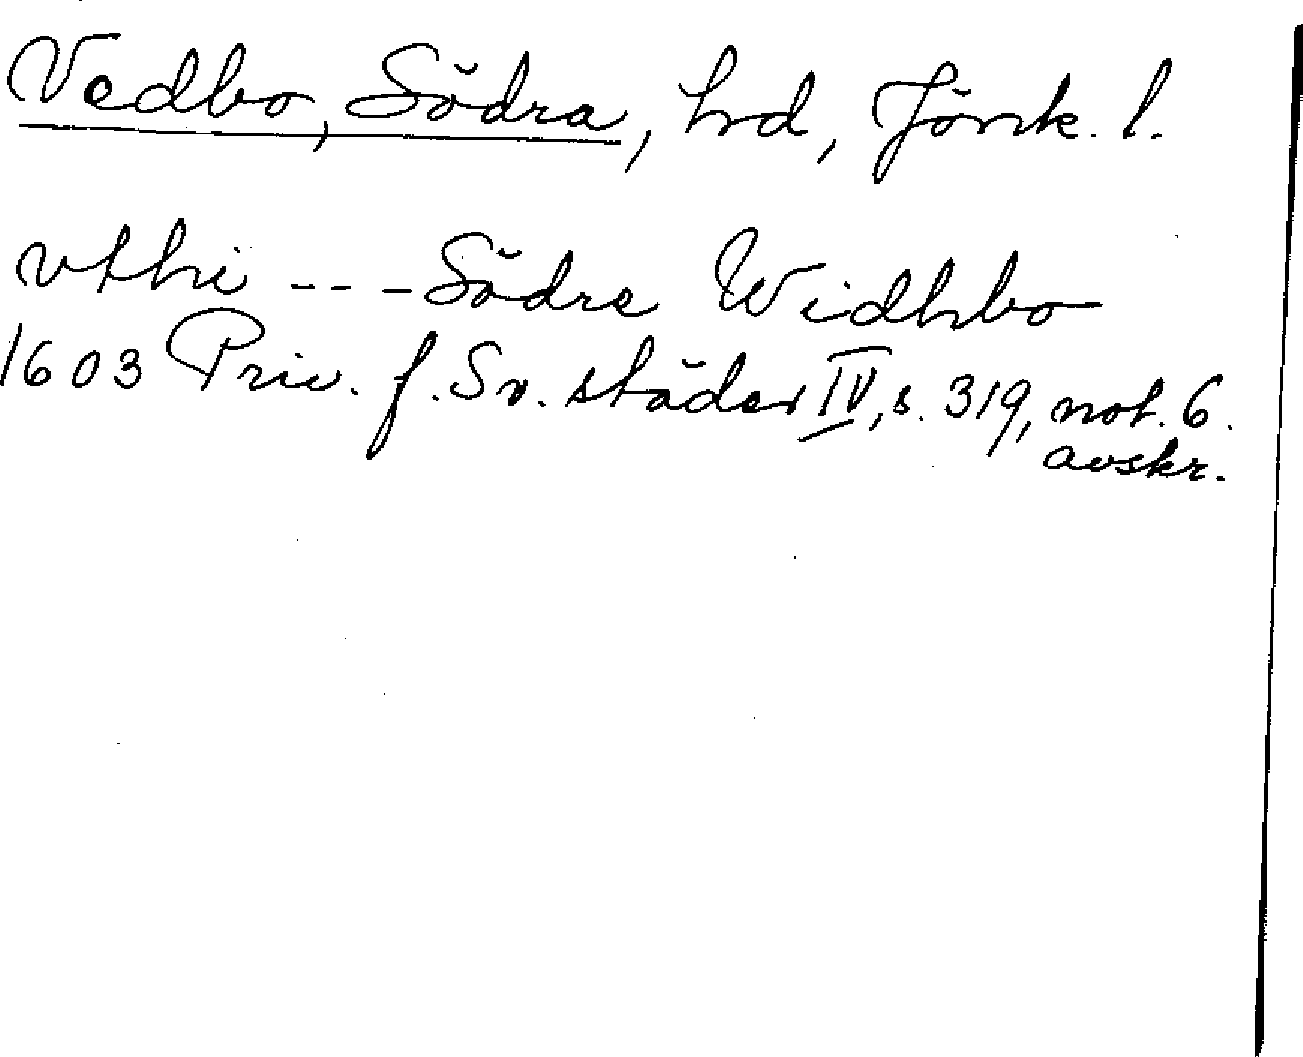 Vedbo, Södra, hd, Jönk. l.
vthi --- Södre Widhbo
1603 Priv. f. Sv. städer IV, s. 319, not. 6.
avskr.